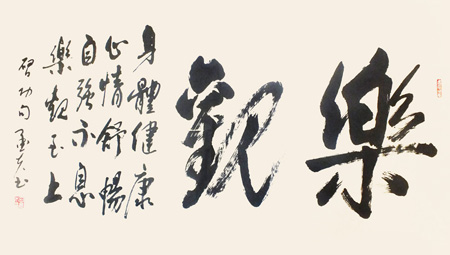 樂觀
身體健康
心情舒暢
自強不息
樂觀至上
啓功句